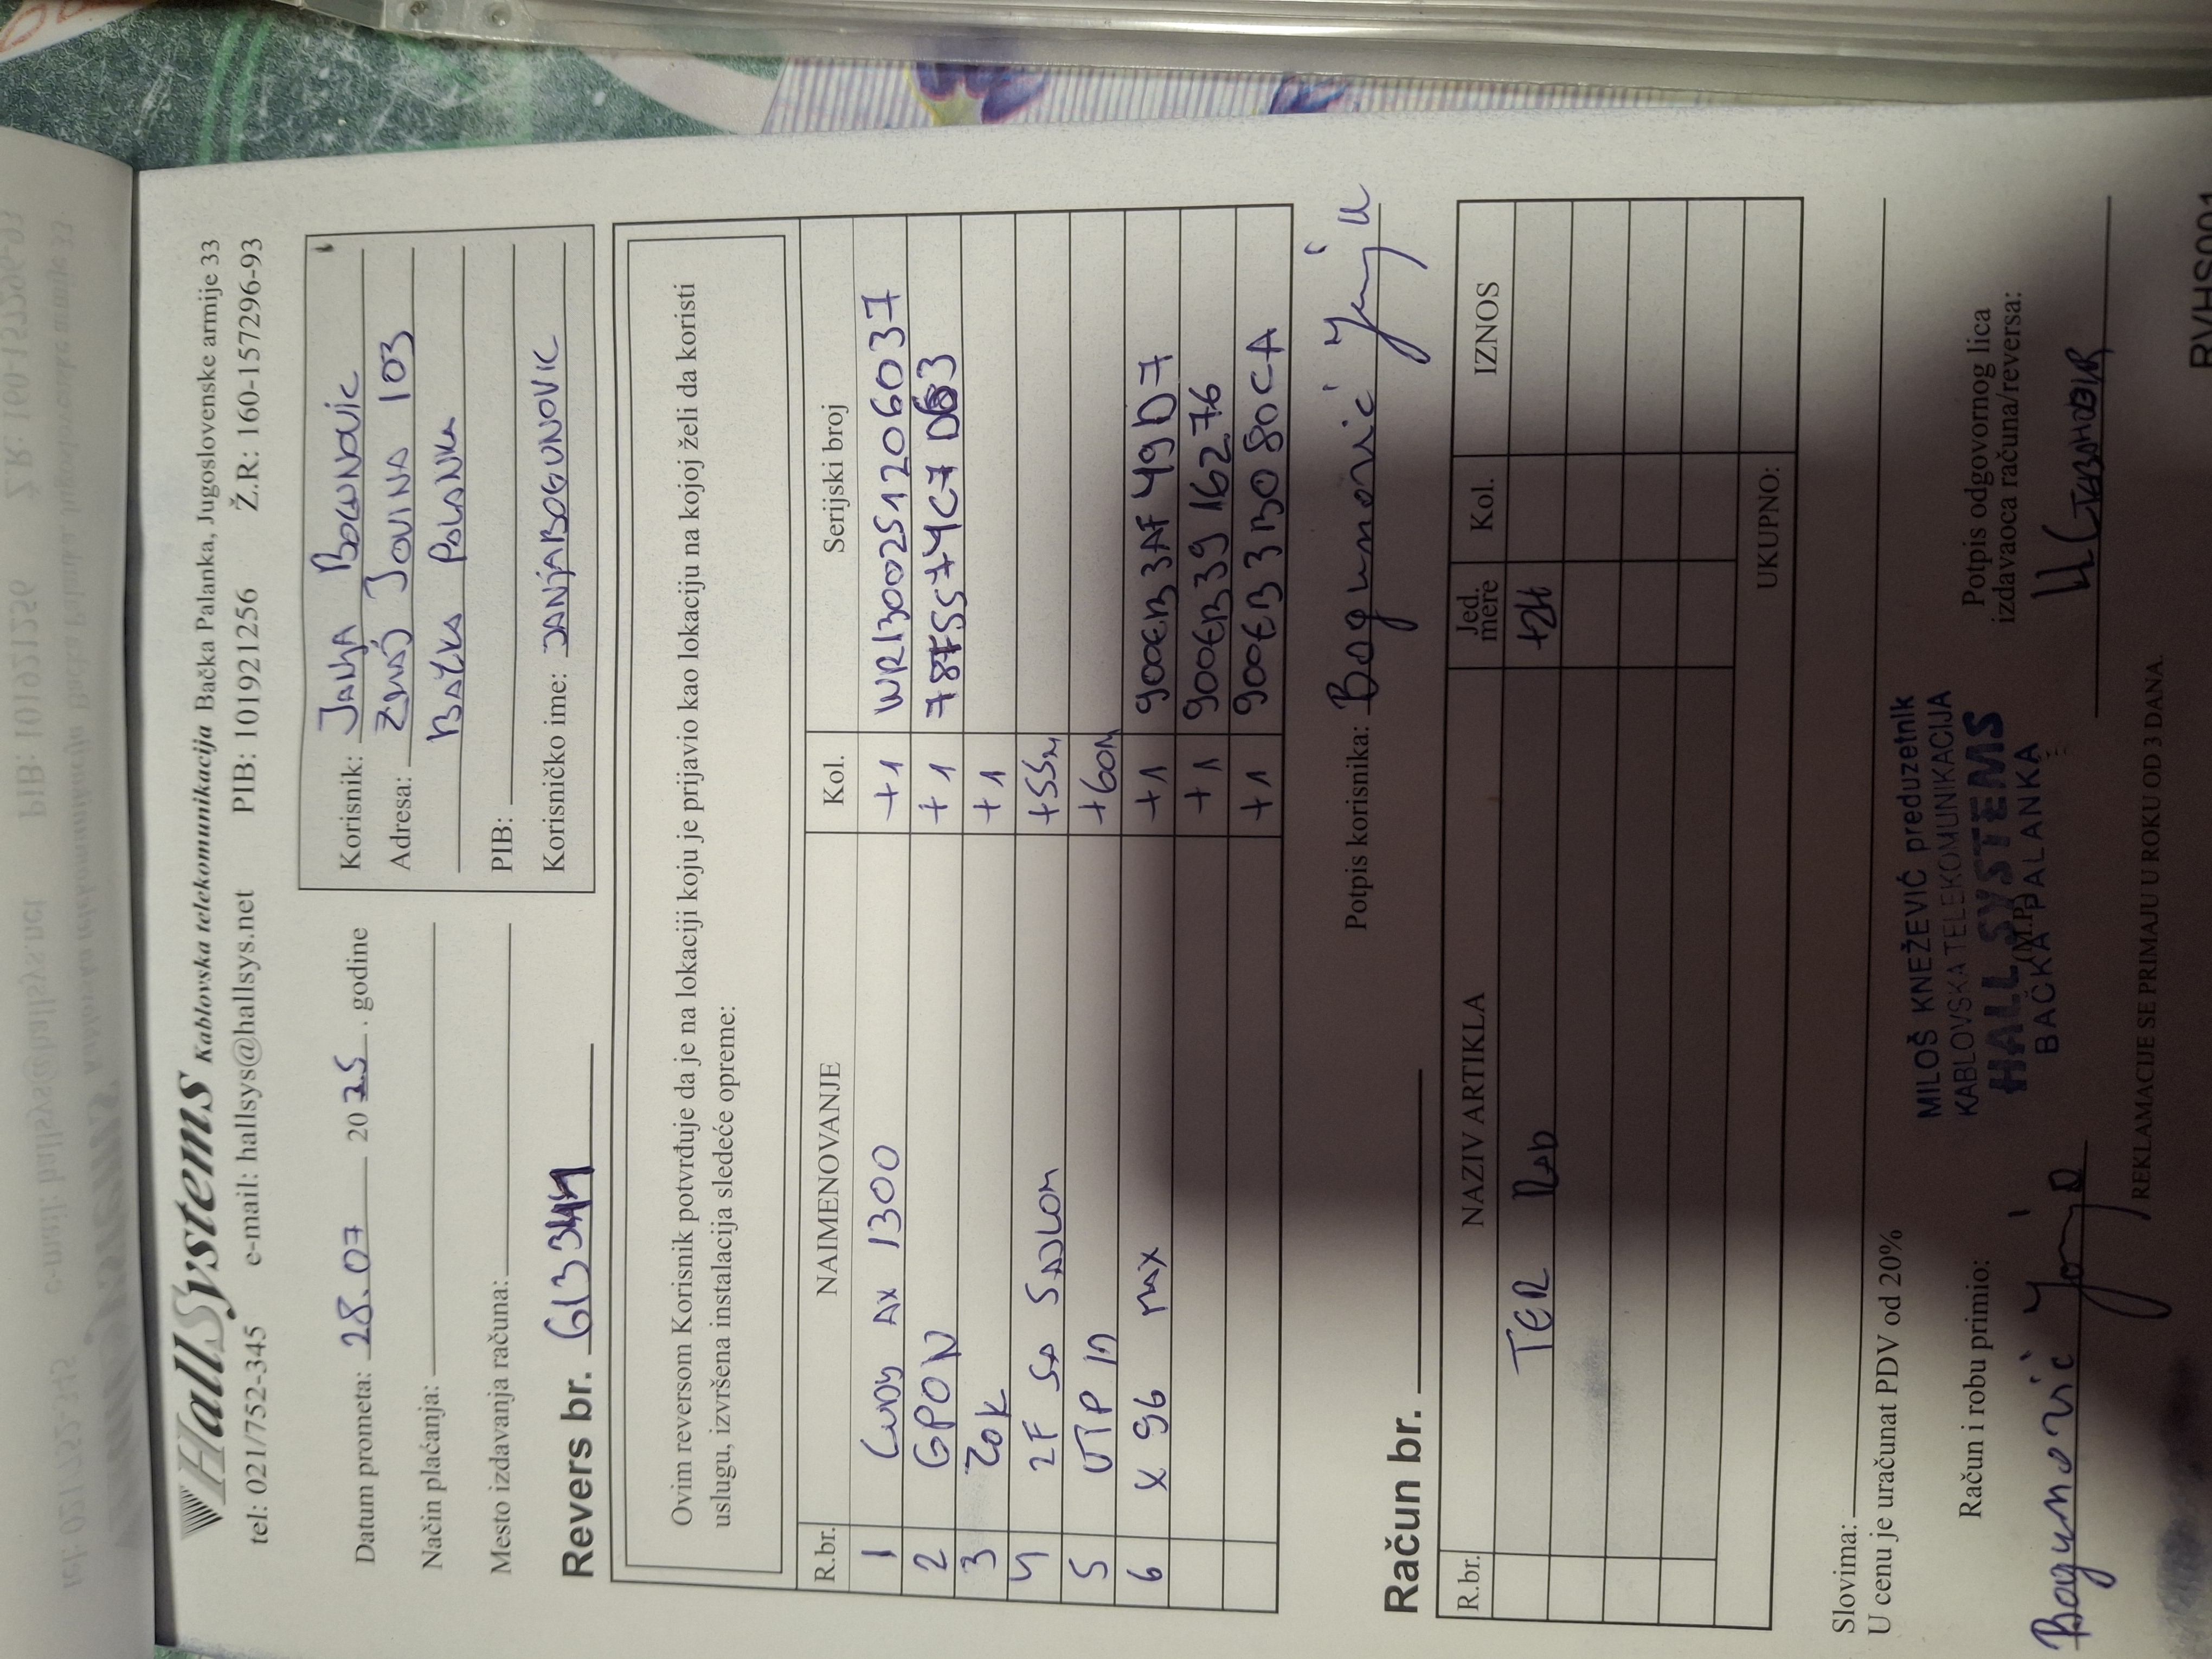 HallSystems Kablovska telekomunikacija Bačka Palanka, Jugoslovenske armije 33
tel: 021/752-345 e-mail: hallsys@hallsys.net PIB: 101921256 Ž.R: 160-157296-93
Datum prometa: 28.07 2025. godine
Način plaćanja:
Mesto izdavanja računa:
Korisnik: JANJA BOGUNOVIC
Adresa: ZMAJ JOVINA 103
BAČKA PALANKA
PIB:
Korisničko ime: JANJABOGUNOVIC
Revers br.
Ovim reversom Korisnik potvrđuje da je na lokaciji koju je prijavio kao lokaciju na kojoj želi da koristi
uslugu, izvršena instalacija sledeće opreme:
R.br. NAIMENOVANJE Kol. Serijski broj
1 CUDY AX 1300 +1 WR1300251206037
2 GPON +1
3 ZOK +1
4 2F SA SAJLOM +55m
5 UTP IN +60m
6 X 96 MAX +1 900EB3AF49D7
+1 900EB3916276
+1 900EB33B080CA
Potpis korisnika: Bogunović Janja
Račun br.
R.br. NAZIV ARTIKLA Jed. mere Kol. IZNOS
TER RAD +2H
UKUPNO:
Slovima:
U cenu je uračunat PDV od 20%
Račun i robu primio:
Bogunović Janja
MILOŠ KNEŽEVIĆ preduzetnik
KABLOVSKA TELEKOMUNIKACIJA
HALL SYSTEMS
BAČKA PALANKA
(M.P.)
Potpis odgovornog lica
izdavaoca računa/reversa:
REKLAMACIJE SE PRIMAJU U ROKU OD 3 DANA.
RVHS001